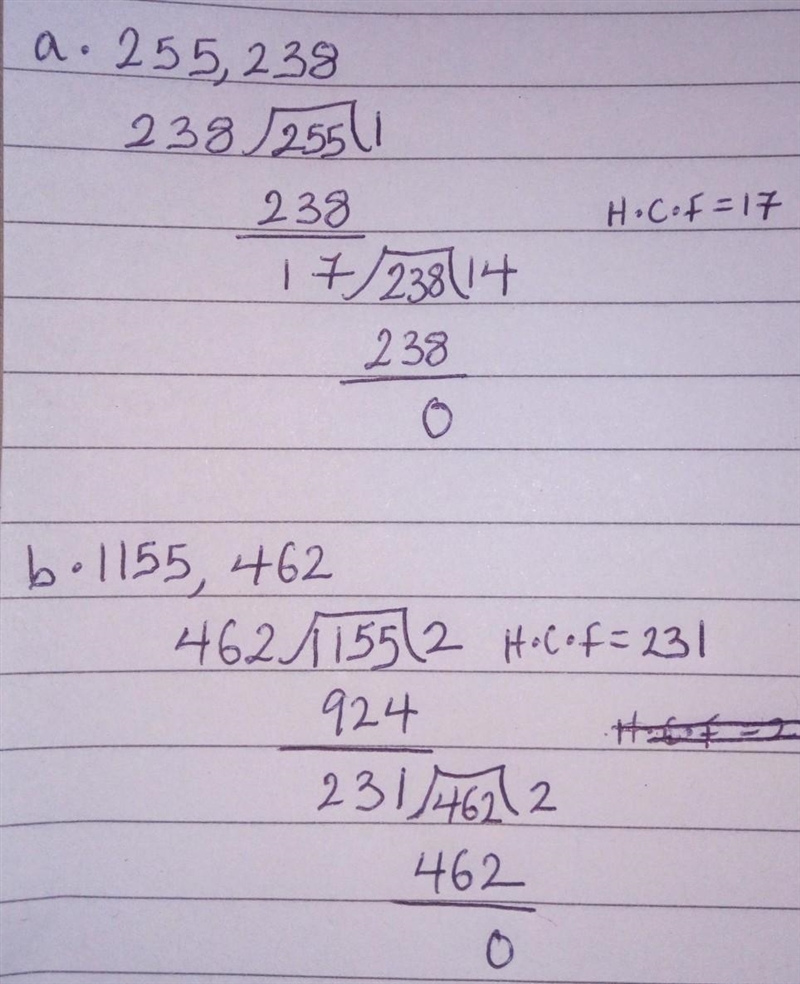 a. 255, 238
238 255 1
238 H.C.F = 17
17 238 14
238
0
b. 1155, 462
462 1155 2 H.C.F = 231
924 H.C.F = 2
231 462 2
462
0